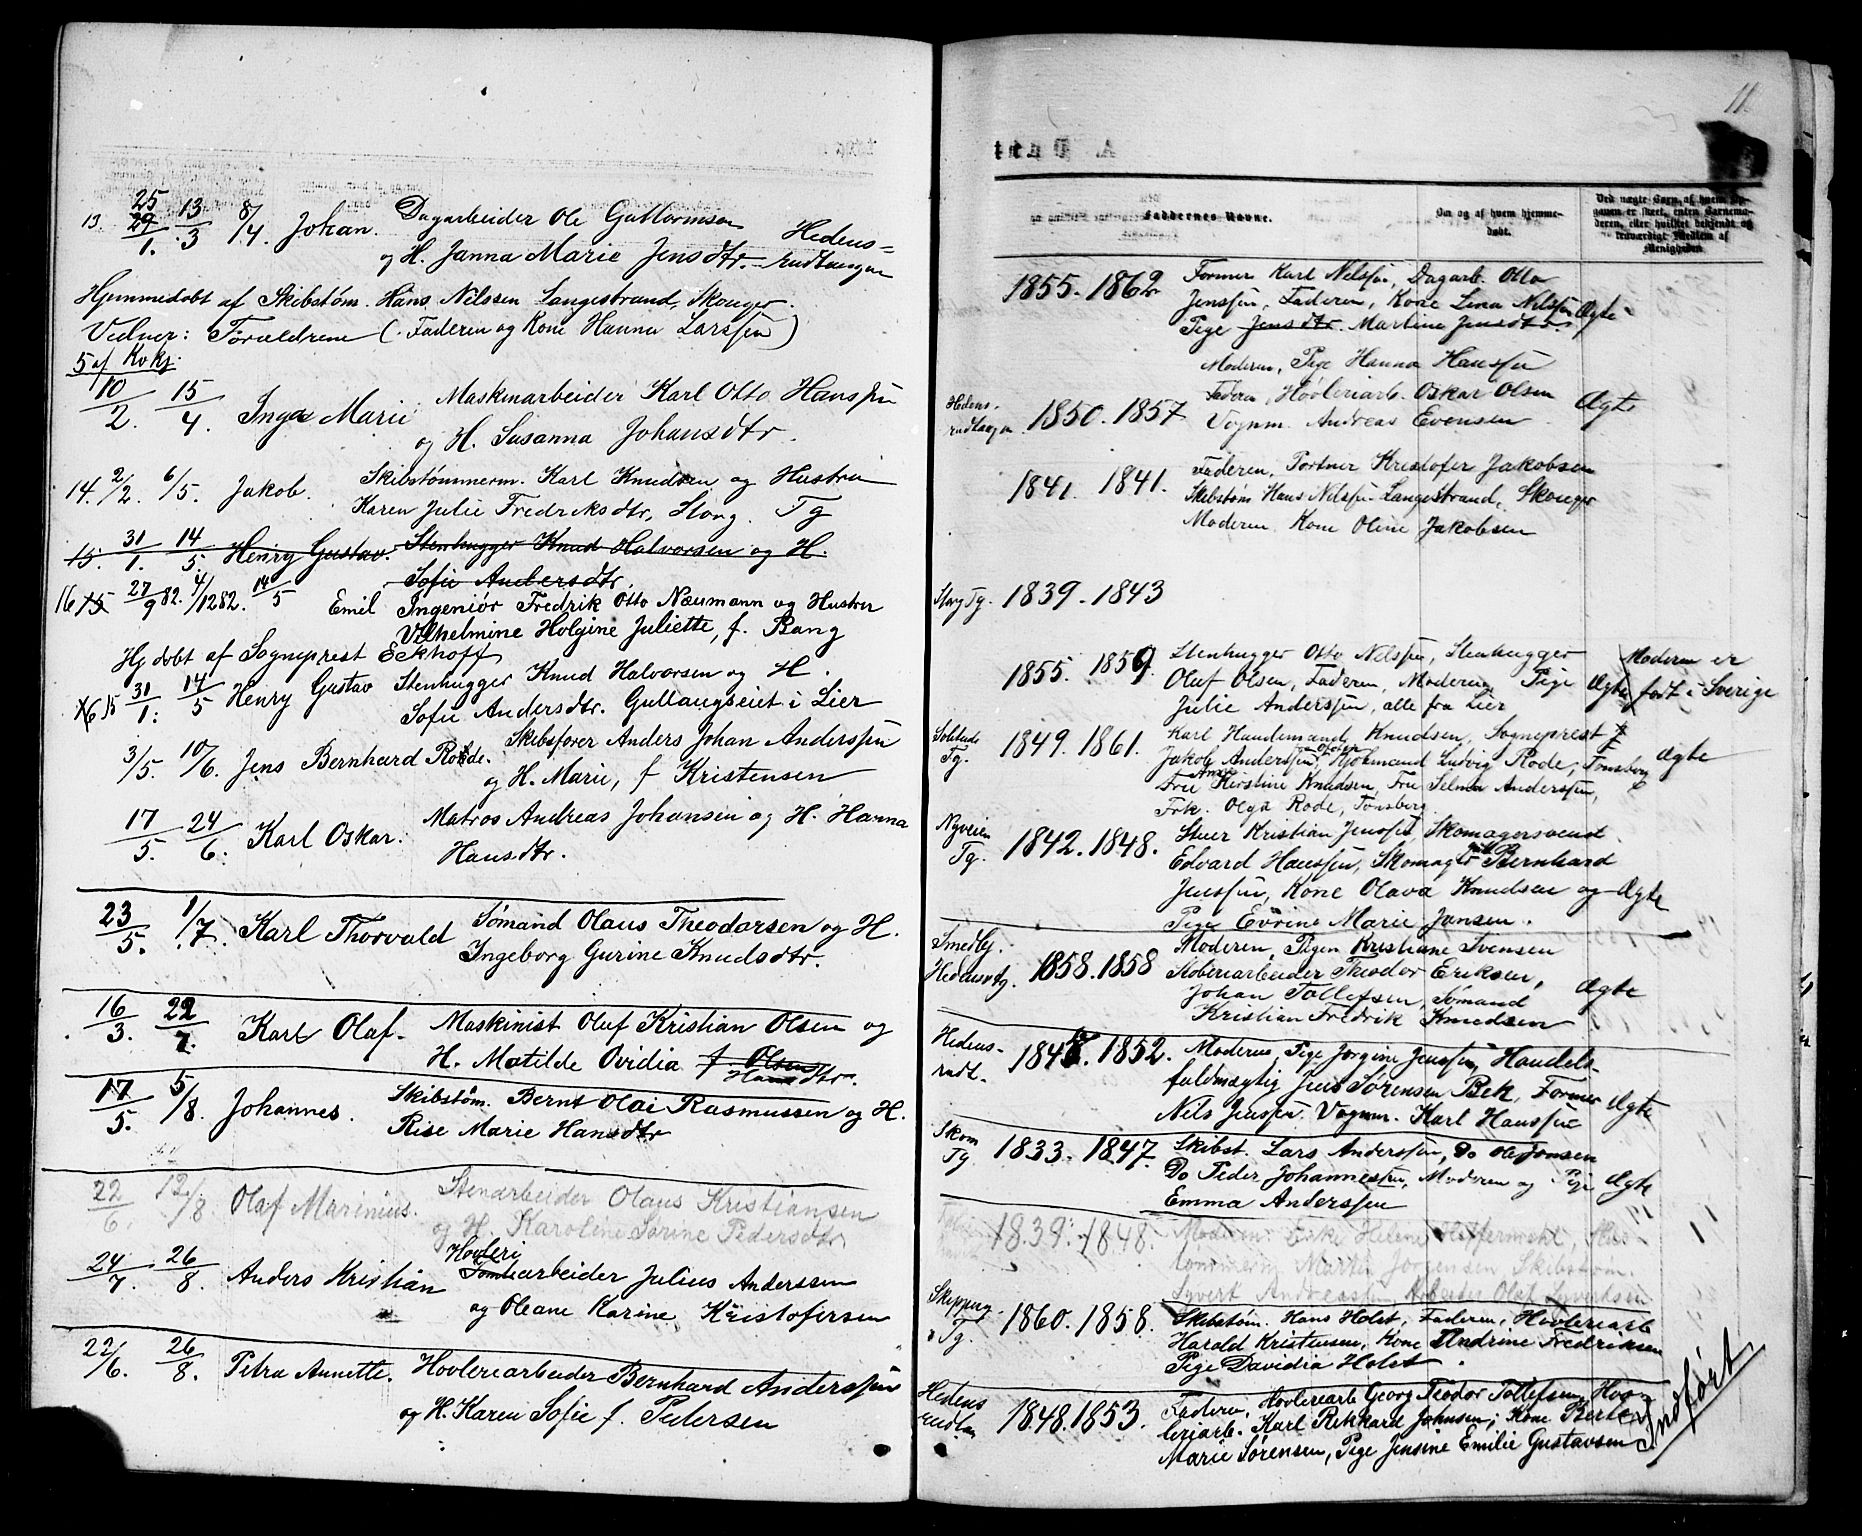 13. 25 29/1. 13/3 8/4 Johan. Dagarbeider Ole Guttormsen Hedens-
og H. Janna Marie Jensdtr. rudtangen
Hjemmedøbt af Skibstøm. Hans Nilssen Langestrand, Skouger.
Vidner: Forældrene (Faderen og Kone Hanna Larssen)
5 af
10/2. 15/4. Inga Marie Maskinarbeider Karl Otto Hanssen
og H. Susanna Johansdtr.
14. 2/2. 6/5. Jakob. Skibstømmerm. Karl Knudsen og Hustru
Karen Julie Fredriksdtr, Stong. Tg
15. 31/1. 14/5. Henry Gustav. Stenhugger Knud Halvorsen og H.
Sofie Andersdtr.
16 15 27/9 82. 4/12 82. 14/5 Emil Ingeniør Fredrik Otto Næumann og Hustru
Vilhelmine Holgine Juliette, f. Bang
Hj. døbt af Sogneprest Eckhoff
16 15 31/1. 14/5 Henry Gustav Stenhugger Knud Halvorsen og H.
Sofie Andersdtr. Gullaugseiet i Lier
3/5. 10/6. Jens Bernhard Rode. Skibsfører Anders Johan Anderssen
og H. Marie, f Kristensen
17/5. 24/6. Karl Oskar. Matros Andreas Johansen og H. Hanna
Hansdtr.
23/5. 1/7. Karl Thorvald Sømand Olaus Theodorsen og H.
Ingeborg Gurine Knudsdtr.
16/3. 22/7. Karl Olaf. Maskinist Oluf Kristian Olsen og
H. Matilde Ovidia f Olsen Hansdtr.
17/5. 5/8. Johannes. Skibstøm. Bernt Olai Rasmussen og H.
Rise Marie Hansdtr
22/6. 12/8. Olaf Marinius. Stenarbeider Olaus Kristiansen
og H. Karoline Sørine Pedersdtr
24/7. 26/8. Anders Kristian Høvleri
Tomtearbeider Julius Anderssen
og Oleane Karine Kristofersen
22/6. 26/8. Petra Annette. Høvleriarbeider Bernhard Anderssen
og H. Karen Sofie f. Pedersen
11.
Faddernes Navne.
Om og af hvem hjemme-
døbt.
Ved uægte Børn, af hvem Op-
gaven er skeet, enten Barnemo-
deren, eller hvilket bekjendt og
troværdigt Medlem af
Menigheden
1855. 1862 Former Karl Nilssen, Dagarb. Otto
Jenssen, Faderen, Kone Lina Nilssen Ægte
Pige Jensdtr. Martine Jensdtr.
Moderen, Pige Hanna Hanssen
Hedens-
rudtangen 1850. 1857 Faderen, Høvleriarb. Oskar Olsen Ægte
Vognm. Andreas Evensen
1841. 1841. Faderen, Portner Kristofer Jakobsen
Skibstøm Hans Nilssen Langestrand, Skouger
Moderen Kone Oline Jakobsen
Stong Tg. 1839. 1843
1855. 1859. Stenhugger Otto Nilssen, Stenhugger Moderen er
Oluf Olsen, Faderen, Moderen, Pige Ægte født i Sverige
Julie Anderssen, alle fra Lier
Solelade
Tg. 1849. 1861. Karl Knudsen, Sogneprest
Jakob Anderssen, Ludvig Rode, Tønsberg Ægte
Frue Kirstine Knudsen, Frue Selma Anderssen,
Frk. Olga Rode, Tønsberg
Nyveien
Tg. 1842. 1848. Stuer Kristian Jenssen Skomagersvend
Edvard Hanssen, Skomager Bernhard
Jenssen, Kone Olava Knudsen og Ægte
Pige Evrine Marie Jansen.
Smedbj.
1858. 1858 Moderen, Pigen Kristiane Svensen
Støberiarbeider Theodor Eriksen, Ægte
Johan Tollefsen, Sømand
Kristian Fredrik Knudsen
Hedens-
rudt. 1852. Moderen, Pige Jørgine Jenssen, Handels-
fuldmægtig Jens Sørensen Bek, Former Ægte
Nils Jenssen. Vognm. Karl Hanssen
Skom
Tg 1833. 1847. Skibst. Lars Anderssen, Do Ole Jonsen
Do Peder Johannessen, Moderen og Pige Ægte
Emma Anderssen
1839. 1848. Moderen, Helene
Martin Jørgensen Skibstøm.
Syvert Andreassen, Arbeider Olaf Syvertsen
Skipping
Tg. 1860. 1858. Skibstøm. Hans Holst, Faderen, Høvleriarb
Harald Kristensen, Kone Andrine Fredriksen
Pige Davidia Holst.
Hedens
rudtan 1848. 1853. Faderen, Høvleriarb Georg Teodor Tollefsen, Høv-
leriarb. Karl Rikkard Johnsen, Kone Berte
Marie Sørensen, Pige Jensine Emilie Gustavsen
Indført